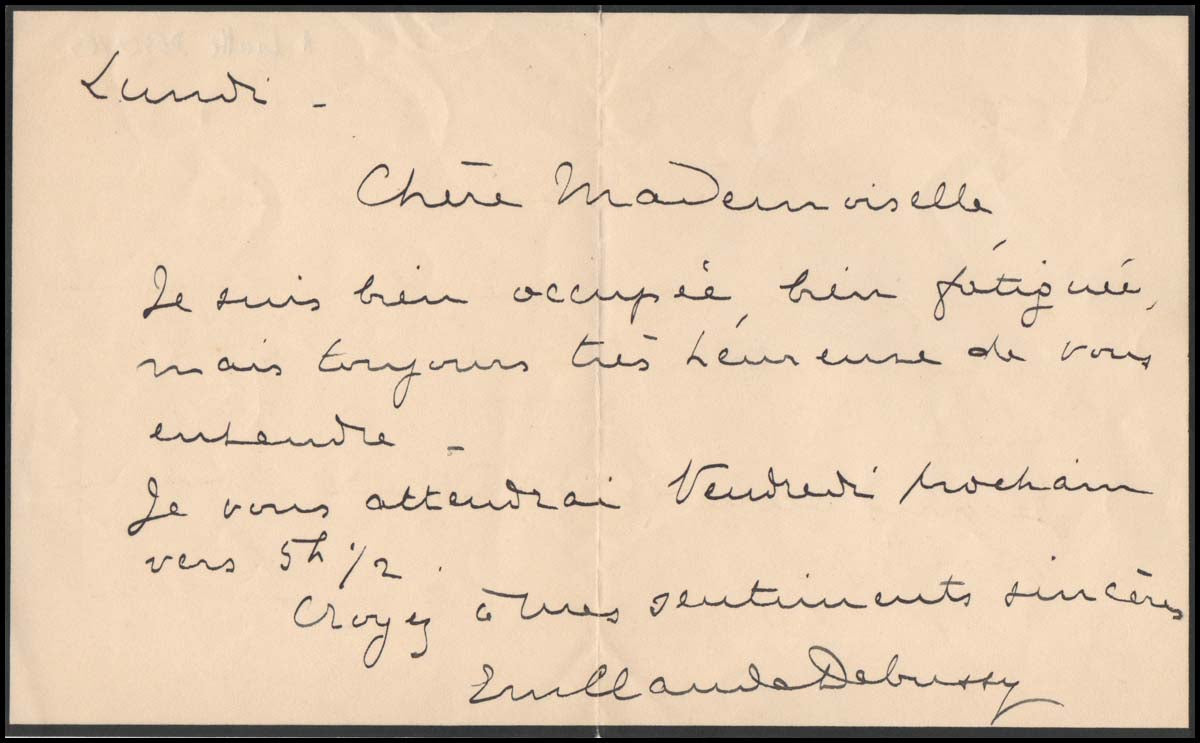 Lundi -
Chère Mademoiselle
Je suis bien occupée, bien fatiguée,
mais toujours très heureuse de vous
entendre -
Je vous attendrai Vendredi prochain
vers 5h 1/2.
Croyez à mes sentiments sincères
Em Claude Debussy